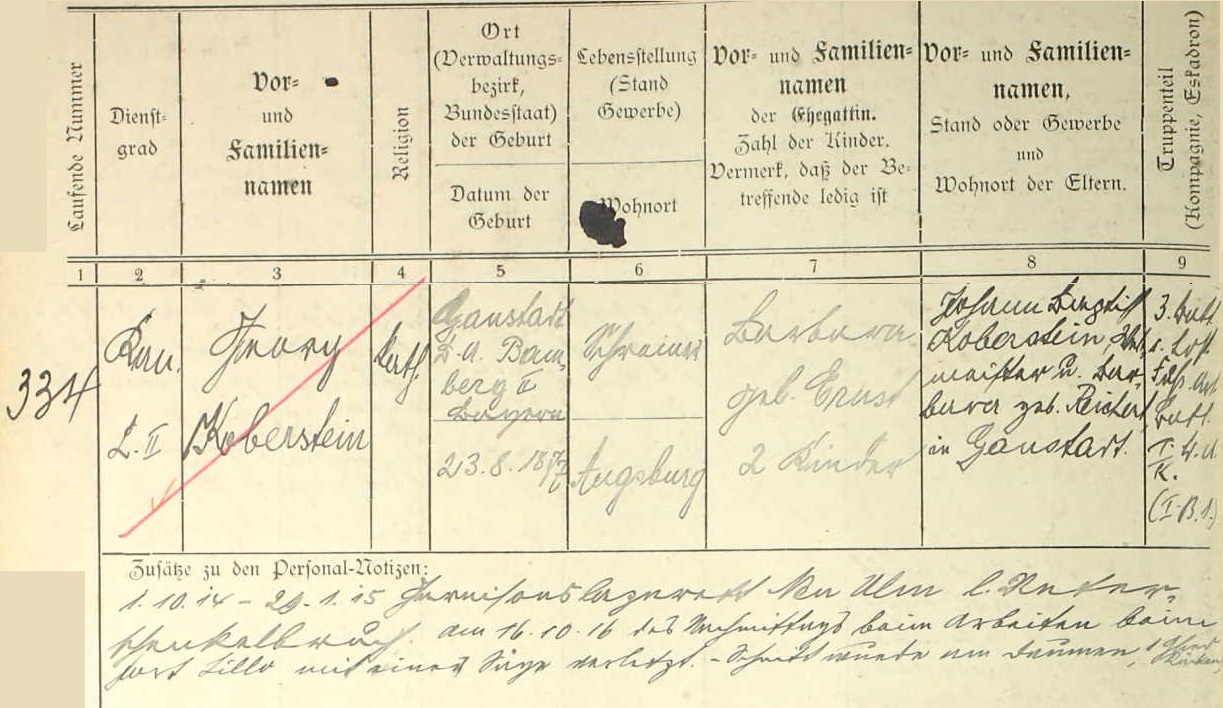 Laufende Nummer
Dienst-
grad
Vor-
und
Familien-
namen
Religion
Ort
(Verwaltungs-
bezirk,
Bundesstaat)
der Geburt
Datum der
Geburt
Lebensstellung
(Stand
Gewerbe)
Wohnort
Vor- und Familien-
namen
der Ehegattin.
Zahl der Kinder.
Vermerk, daß der Be-
treffende ledig ist
Vor- und Familien-
namen,
Stand oder Gewerbe
und
Wohnort der Eltern.
Truppenteil
(Kompagnie, Eskadron)
1 2 3 4 5 6 7 8 9
334
Kan.
L. II
Georg
Koberstein
kath.
Gaustadt
B.A. Bam-
berg I
Bayern
23.8.
Schreiner
Augsburg
Barbara
geb. Ernst
2 Kinder
Johann
Koberstein,
meister u. Bar-
bara geb. Reichert
in Gaustadt.
3. Batt.
Batt.
K.
Zusätze zu den Personal-Notizen:
1.10.14 – 1.15 Garnisonslazarett Neu Ulm l. Unter-
schenkelbruch. am 16.10.16 des Nachmittags beim Arbeiten beim
Fort Lillo mit einer Säge verletzt. – Schnittwunde am Daumen,